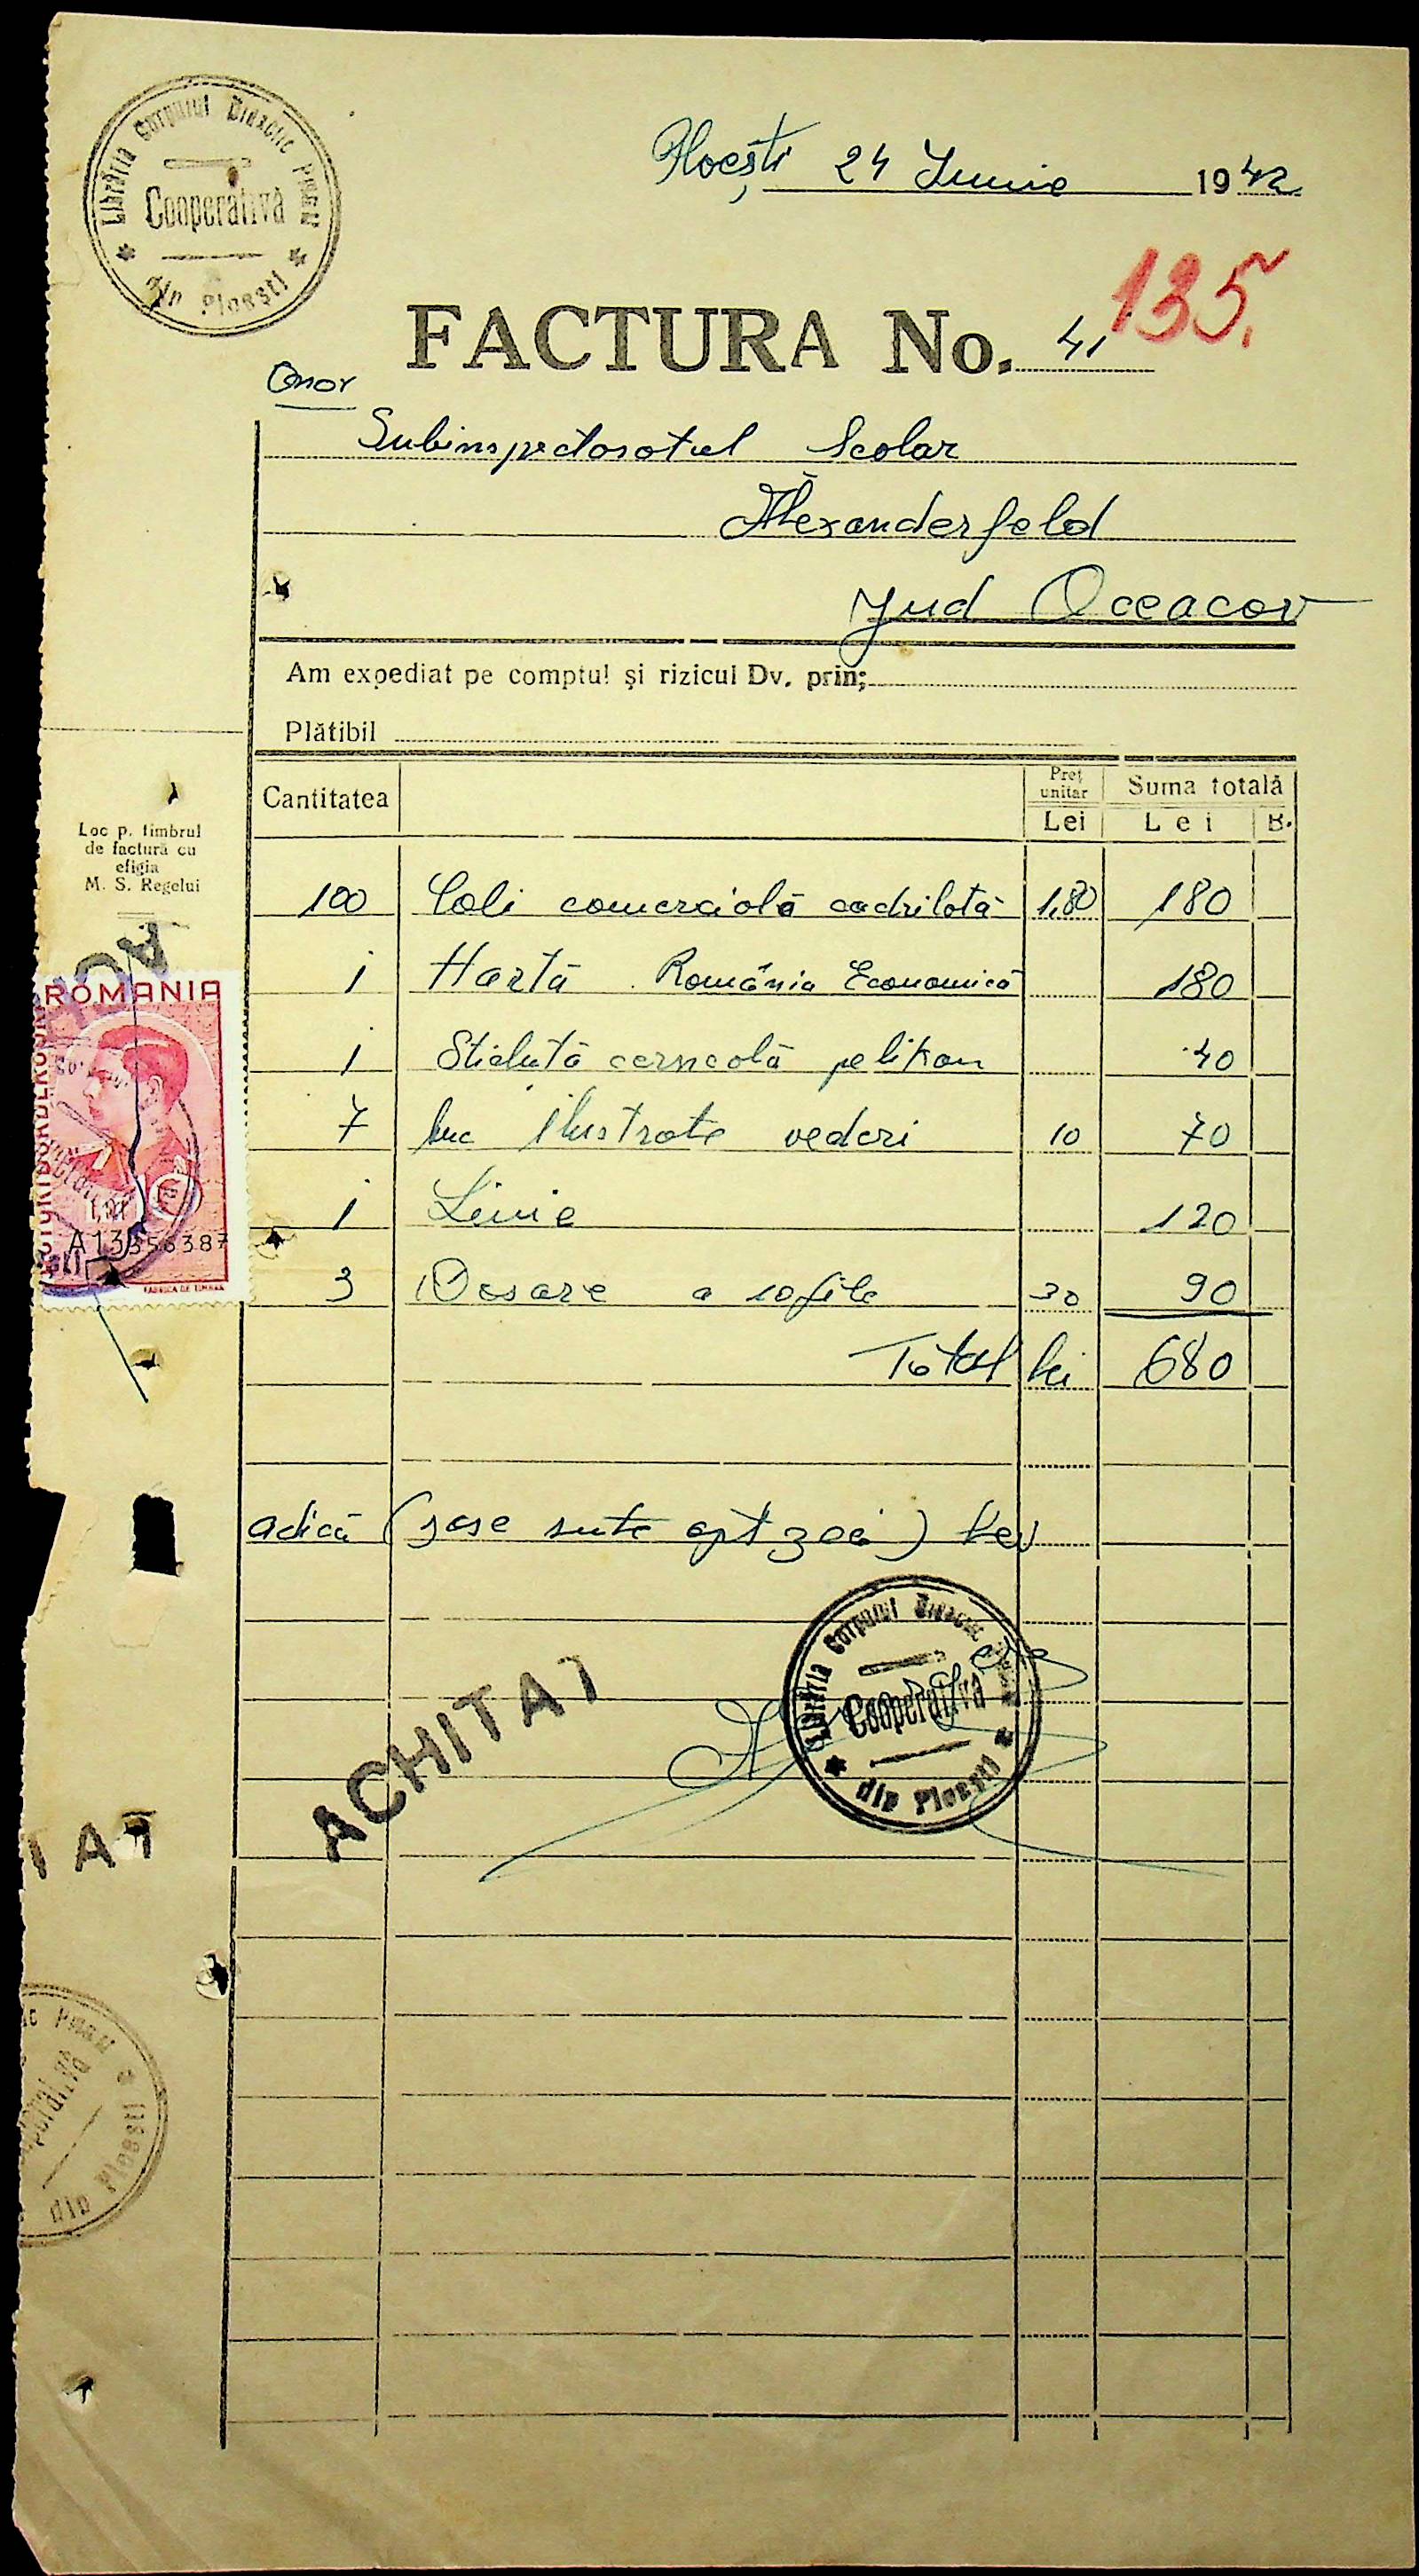 Librăria Corpului Didactic
Cooperativa
din Ploești
Ploești 24 Iunie 1942
135.
FACTURA No. 41
Onor
Subinspectoratul Scolar
Alexanderfeld
Jud Oceacov
Am expediat pe comptul și rizicul Dv. prin;
Plătibil
Cantitatea Preț unitar Suma totală
Lei Lei B.
Loc p. timbrul
de factură cu
efigia
M. S. Regelui
100 Coli comercială cadrilată 1,80 180
1 Hartă România Economică 180
1 Sticluță cerneală pelikan 40
7 buc ilustrate vederi 10 70
1 Linie 120
3 Dosare a 10 file 30 90
Total lei 680
adică (șase sute optzeci) lei
ROMANIA
FABRICA DE TIMBRE
ACHITAT
Librăria Corpului Didactic
Cooperativa
din Ploești
TAT
din Ploești